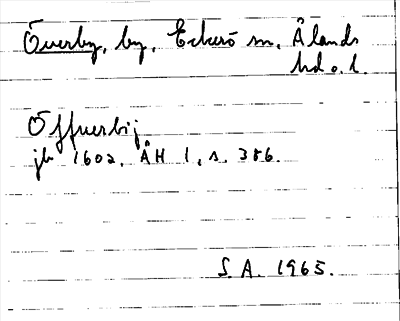 Överby, by, Eckerö sn, Ålands
hd o. l.
Öffuerbij
jb 1602. ÅH 1, s. 386.
S. A. 1965.